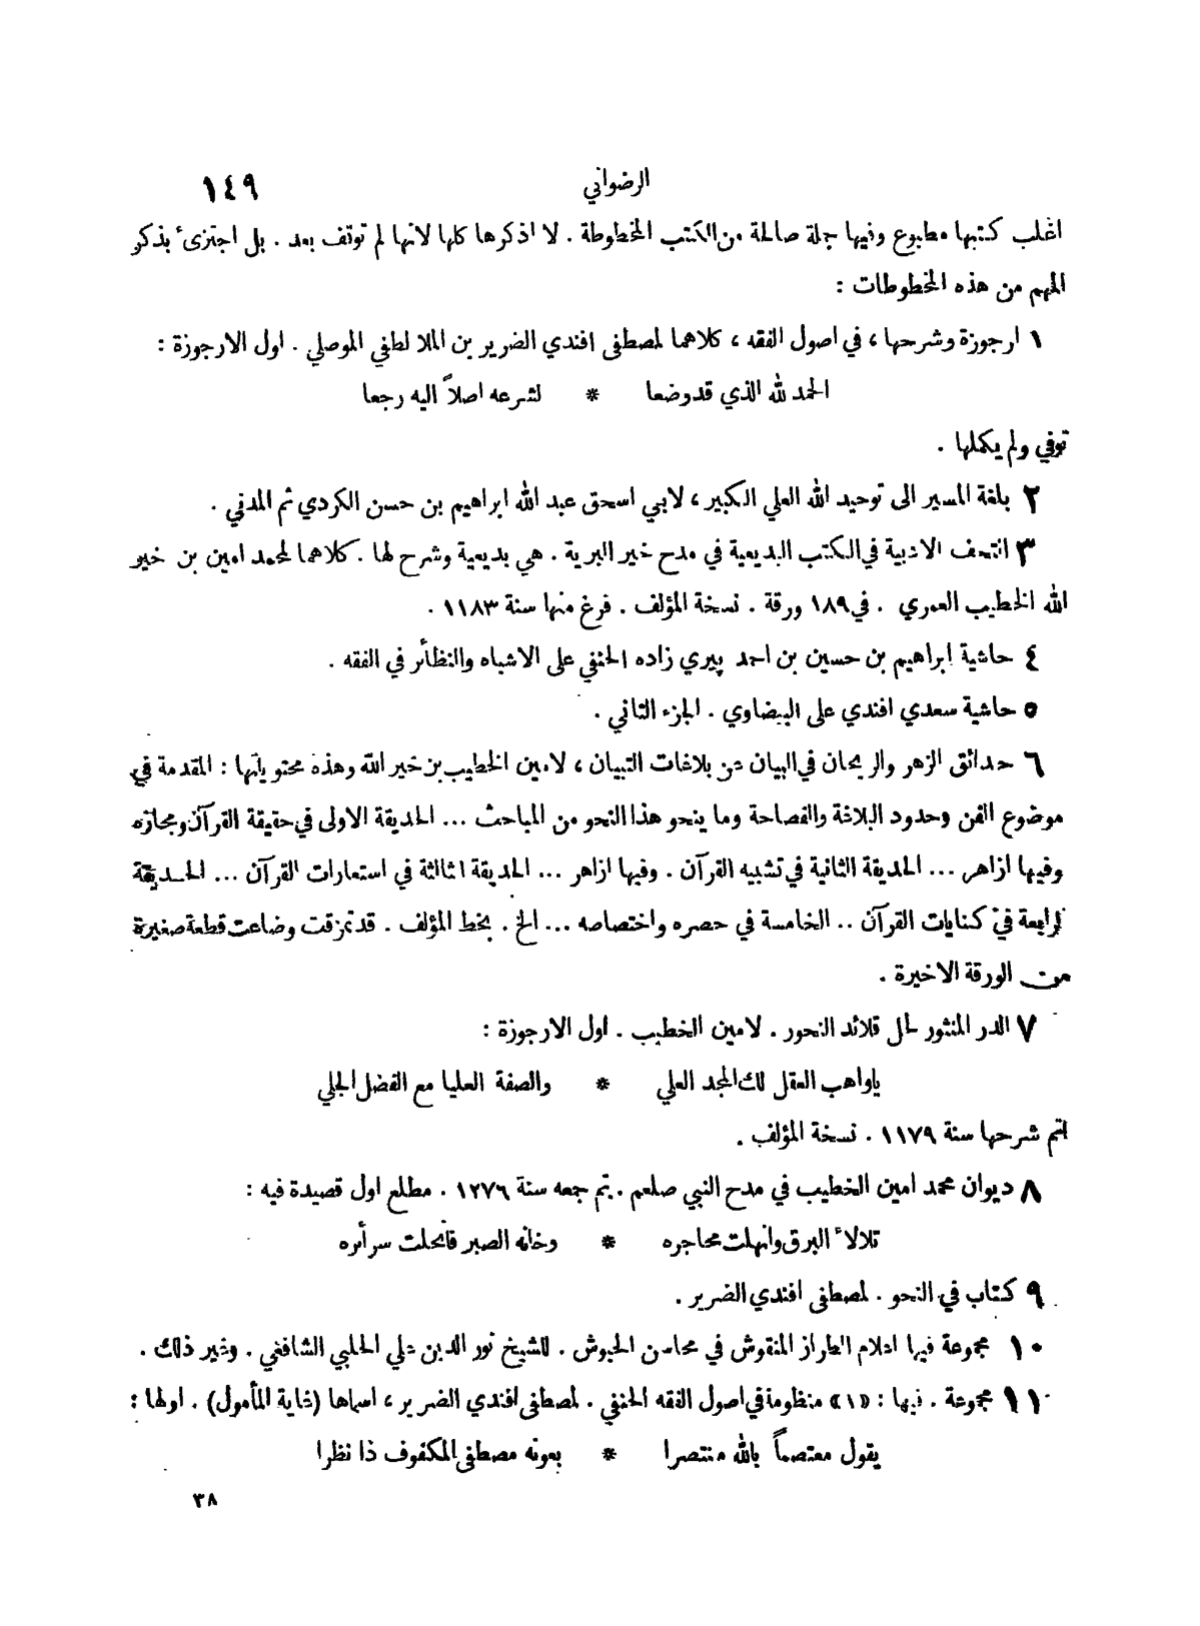 الرضواني ١٤٩
اغلب كتبها مطبوع وفيها جملة صالحة من الكتب المخطوطة . لا اذكرها كلها لانها لم توقف بعد . بل اجتزئ بذكر
المهم من هذه المخطوطات :
١ ارجوزة وشرحها ، في اصول الفقه ، كلاهما لمصطفى افندي الضرير بن الملا لطفي الموصلي . اول الارجوزة :
الحمد لله الذي قد وضعا * لشرعه اصلاً اليه رجعا
توفي ولم يكملها .
٢ بلغة المسير الى توحيد الله العلي الكبير ، لابي اسحق عبد الله ابراهيم بن حسن الكردي ثم المدني .
٣ التحف الادبية في الكتب البديعية في مدح خير البرية . هي بديعية وشرح لها . كلاهما لمحمد امين بن خير
الله الخطيب العمري . في ١٨٩ ورقة . نسخة المؤلف . فرغ منها سنة ١١٨٣ .
٤ حاشية ابراهيم بن حسين بن احمد پيري زاده الحنفي على الاشباه والنظائر في الفقه .
٥ حاشية سعدي افندي على البيضاوي . الجزء الثاني .
٦ حدائق الزهر والريحان في البيان من بلاغات التبيان ، لامين الخطيب بن خير الله وهذه محتوياتها : المقدمة في
موضوع الفن وحدود البلاغة والفصاحة وما ينحو هذا النحو من المباحث ... الحديقة الاولى في حقيقة القرآن ومجازه
وفيها ازاهر ... الحديقة الثانية في تشبيه القرآن . وفيها ازاهر ... الحديقة الثالثة في استعارات القرآن ... الحديقة
الرابعة في كنايات القرآن .. الخامسة في حصره واختصاصه ... الخ . بخط المؤلف . قد تمزقت وضاعت قطعة صغيرة
من الورقة الاخيرة .
٧ الدر المنثور لحل قلائد النحور . لامين الخطيب . اول الارجوزة :
ياواهب العقل لك المجد العلي * والصفة العليا مع الفضل الجلي
اتم شرحها سنة ١١٧٩ . نسخة المؤلف .
٨ ديوان محمد امين الخطيب في مدح النبي صلعم . تم جمعه سنة ١٢٧٦ . مطلع اول قصيدة فيه :
تلالأ البرق وانهلت محاجره * وخانه الصبر فانحلت سرائره
٩ كتاب في النحو . لمصطفى افندي الضرير .
١٠ مجموعة فيها اعلام الطراز المنقوش في محاسن الحبوش . للشيخ نور الدين علي الحلبي الشافعي . وغير ذلك .
١١ مجموعة . فيها : «١» منظومة في اصول الفقه الحنفي . لمصطفى افندي الضرير ، اسماها (غاية المأمول) . اولها :
يقول معتصماً بالله منتصرا * بعونه مصطفى المكفوف ذا نظرا
٣٨